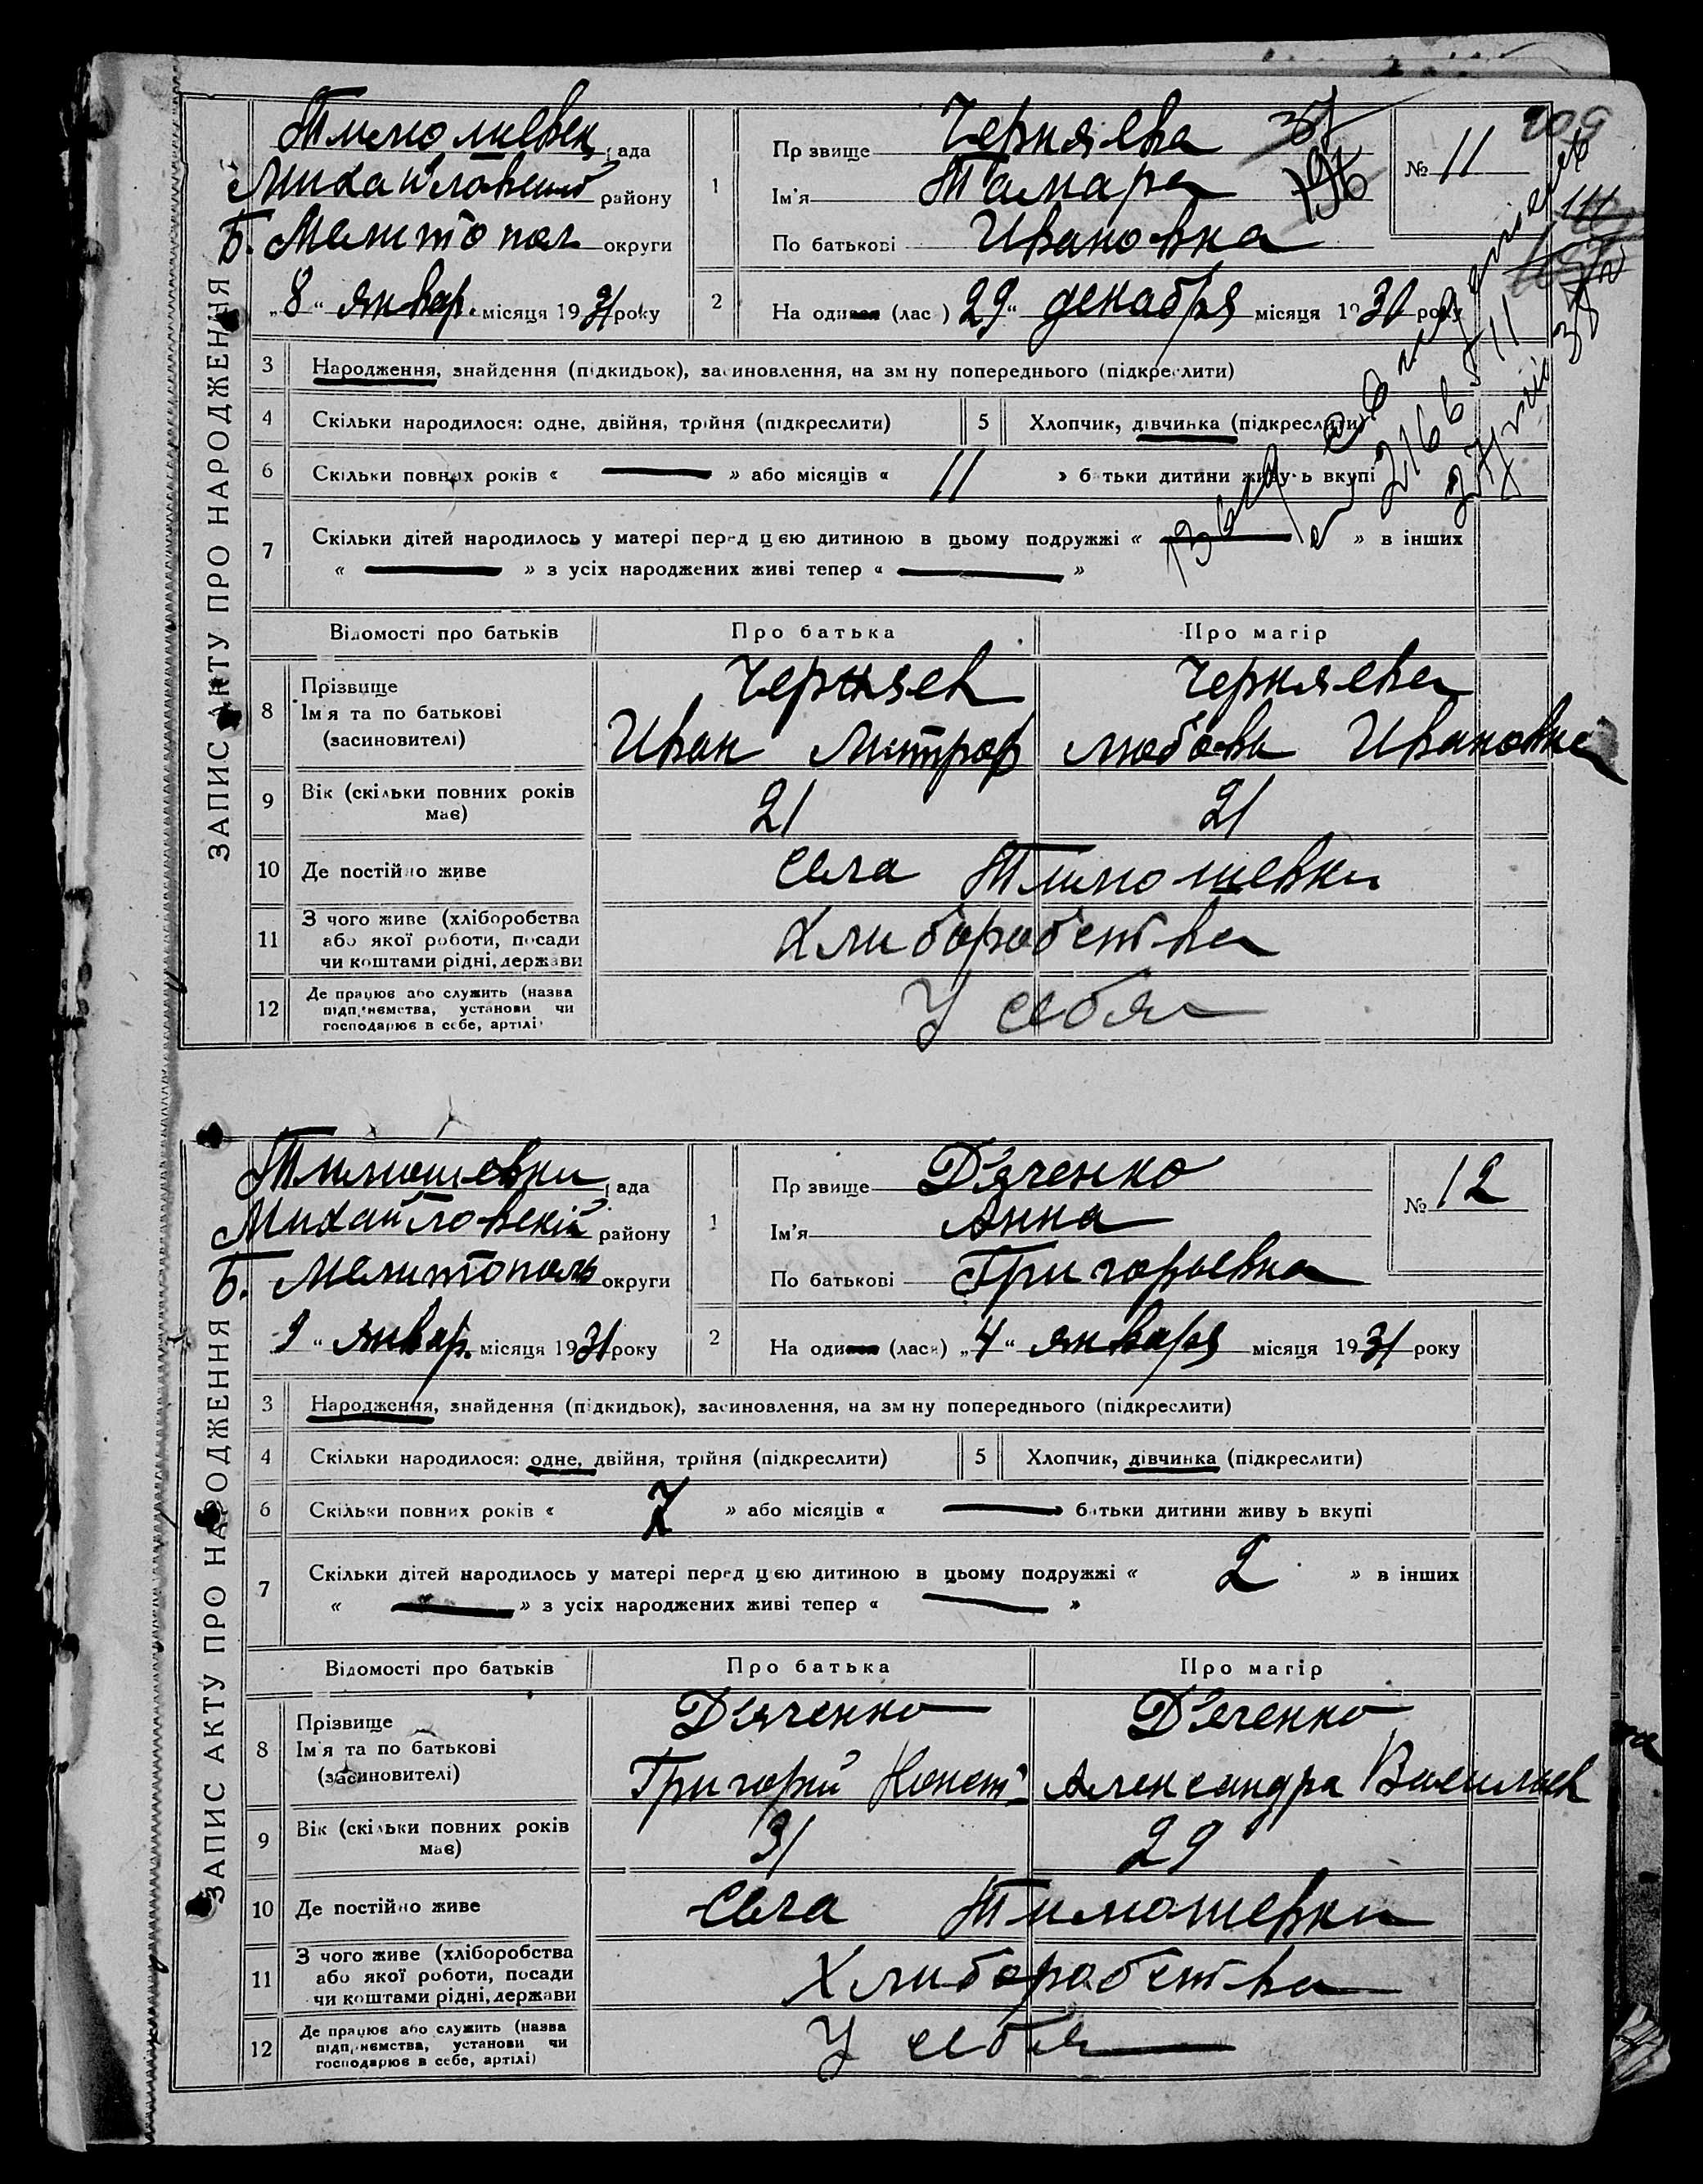 ЗАПИС АКТУ ПРО НАРОДЖЕННЯ
Тимошевск рада
Михайловский району
Б. Мелитопол округи
„8“ январ. місяця 1931 року
1
Прізвище Черняева
Ім'я Тамара
По батькові Ивановна
№ 11
209
2
На одився (лас ) 29“ декабря місяця 1930 року
3 Народження, знайдення (підкидьок), засиновлення, на зміну попереднього (підкреслити)
4 Скільки народилося: одне, двійня, трійня (підкреслити)
5 Хлопчик, дівчинка (підкреслити)
6 Скільки повних років « — » або місяців « 11 » батьки дитини живуть вкупі
7 Скільки дітей народилось у матері перед цією дитиною в цьому подружжі « — » в інших
« — » з усіх народжених живі тепер « — »
Відомості про батьків
Про батька
Про матір
8 Прізвище
Ім'я та по батькові
(засиновителі)
Черняев
Иван Митроф
Черняева
Любовь Ивановна
9 Вік (скільки повних років має)
21
21
10 Де постійно живе
села Тимошевки
11 З чого живе (хліборобства
або якої роботи, посади
чи коштами рідні, держави
Хлиборобства
12 Де працює або служить (назва
підприємства, установи чи
господарює в себе, артілі)
У себя
ЗАПИС АКТУ ПРО НАРОДЖЕННЯ
Тимошевки рада
Михайловский району
Б. Мелитополь округи
9 “ январ. місяця 1931 року
1
Прізвище Д'яченко
Ім'я Анна
По батькові Григорьевна
№ 12
2
На одився (лася) „4“ января місяця 1931 року
3 Народження, знайдення (підкидьок), засиновлення, на зміну попереднього (підкреслити)
4 Скільки народилося: одне, двійня, трійня (підкреслити)
5 Хлопчик, дівчинка (підкреслити)
6 Скільки повних років « 7 » або місяців « — » батьки дитини живуть вкупі
7 Скільки дітей народилось у матері перед цією дитиною в цьому подружжі « 2 » в інших
« — » з усіх народжених живі тепер « — »
Відомості про батьків
Про батька
Про матір
8 Прізвище
Ім'я та по батькові
(засиновителі)
Д'яченко
Григорий Конст
Д'яченко
Александра Васильев
9 Вік (скільки повних років має)
31
29
10 Де постійно живе
села Тимошевки
11 З чого живе (хліборобства
або якої роботи, посади
чи коштами рідні, держави
Хлиборобства
12 Де працює або служить (назва
підприємства, установи чи
господарює в себе, артілі)
У себя